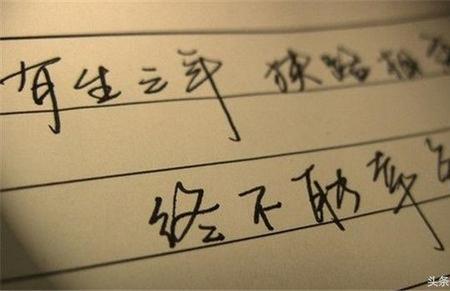 有生之年 狭路相
终不能幸
头条